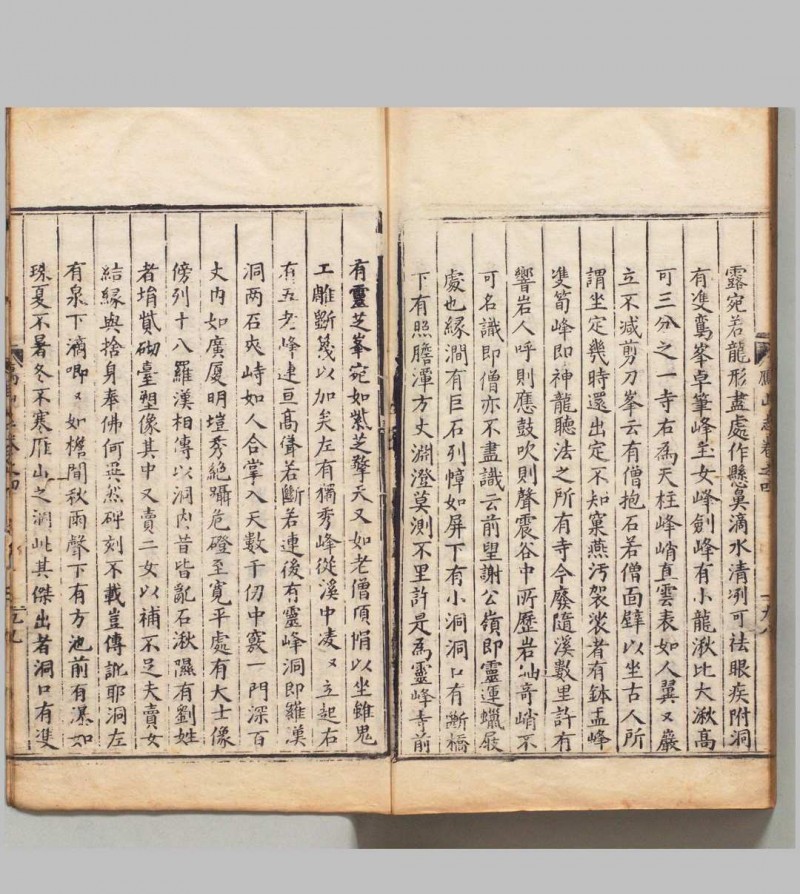 露宛若龍形盡處作懸鼻滴水清冽可祛眼疾附洞
有㕠鸞峯卓筆峰玉女峰劍峰有小龍湫比大湫髙
可三分之一寺右為天柱峰峭直雲表如人翼又巖
立不减剪刀峯云有僧抱石若僧面壁以坐古人所
謂坐定幾時還出定不知窠燕汚袈裟者有鉢盂峰
㕠筍峰即神龍聽法之所有寺今廢隨溪數里許有
響岩人呼則應鼓吹則聲震谷中所歷岩岫奇峭不
可名識即僧亦不盡識云前望謝公嶺即靈運蠟屐
處也縁澗有巨石列幛如屏下有小洞洞口有斷橋
下有照膽潭方丈淵澄莫測不里許是為靈峰寺前
有靈芝峯宛如紫芝擎天又如老僧頂帽以坐雖鬼
工雕斷篾以加矣左有獨秀峰從溪中凌又立起右
有五老峰連亘髙聳若斷若連後有靈峰洞即羅漢
洞两石夾峙如人合掌入天數千仞中竅一門深百
丈内如廣厦明塏秀絶躡危磴至寛平處有大士像
傍列十八羅漢相傳以洞内昔皆亂石湫隰有劉姓
者捐貲砌臺塑像其中又賣二女以補不足夫賣女
結縁與捨身奉佛何異然碑刻不載豈傳訛耶洞左
有泉下滴唧又如檐間秋雨聲下有方池前有瀑如
珠夏不暑冬不寒雁山之洞此其傑出者洞口有㕠